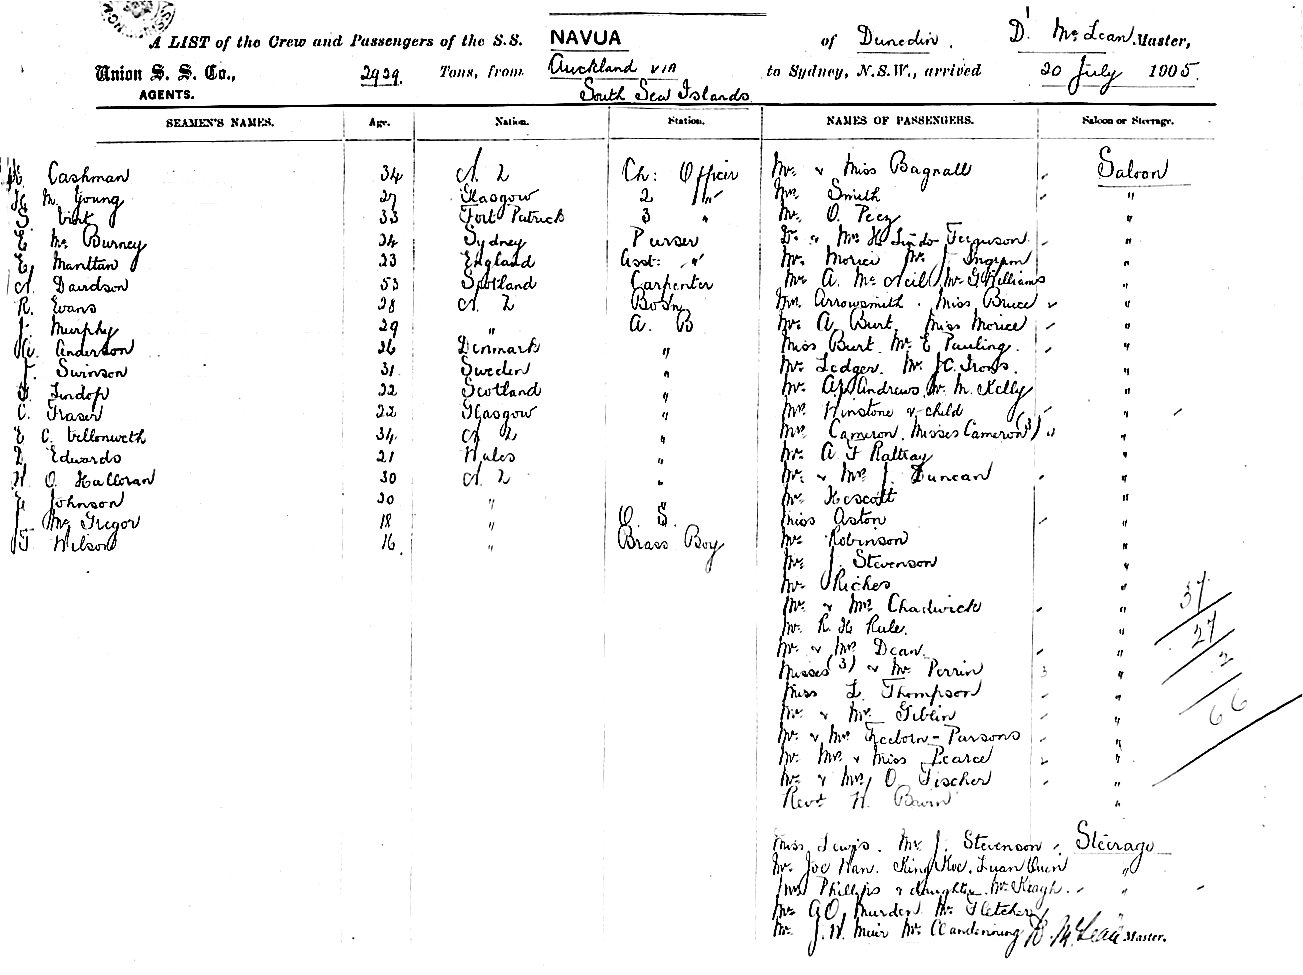 A LIST of the Crew and Passengers of the S.S. NAVUA of Dunedin. D. McLean, Master,
Union S. S. Co., 2929. Tons, from Auckland via to Sydney, N.S.W., arrived 20 July 1905.
AGENTS. South Sea Islands
SEAMEN'S NAMES. Age. Nation. Station. NAMES OF PASSENGERS. Saloon or Steerage.
Cashman 34 N. Z Ch: Officer Mr. & Miss Bagnall Saloon
M. Young 27 Glasgow 2 " Mrs Smith "
S. 33 Port Patrick 3 " Mr. O. "
E Mc Burney 24 Sydney Purser Dr. & Mrs H. Lindo Ferguson "
E. Manttan 23 England Asst: " Mr. Morici Mr. J. Ingram "
A. Davidson 53 Scotland Carpenter Mr A. McNeil Mr G Williams "
R. Evans 28 N. Z Bosn Mrs Arrowsmith. Miss Bruce "
J. Murphy 29 " A. B Mr. A. Burt. Miss Morice "
A. Anderson 26 Denmark " Miss Burt. Mr. E Pauling. "
J. Swinson 31 Sweden " Mr Ledger. Mr. J.C. Irons. "
Lindop 22 Scotland " Mr. Andrews. Mr. M. Kelly "
C. Fraser 22 Glasgow " Mrs Winstone & child "
E C. 34 N Z " Mrs Cameron. Misses Cameron (3) "
Edwards 21 Wales " Mr. A F Rattray "
O. Halloran 30 N. Z " Mr. & Mrs J. Duncan "
Johnson 20 " " Mr. Hescott "
J. Mc Gregor 18 " O. S. Miss Aston "
T Wilson 16 " Brass Boy Mr. Robinson "
Mr. J. Stevenson "
Mr Riches "
Mr. & Mrs Chadwick "
37
Mr. R. H Rule. "
27
Mr & Mrs Dean. "
2
Misses (3) & Mr Perrin "
Miss L. Thompson "
66
Mr. & Mr. Giblin "
Mr. & Mrs Freeborn-Parsons "
Mr. Mrs & Miss Pearce "
Mr & Mrs O. Fischer "
Revd H. "
Miss Lewis. Mr J. Stevenson Steerage
Mr. Joe Han. King "
Mrs Phillips & daughter. Mr "
Mr G.O. Murden Mr Fletcher
Mr. J.W. Muir Mr Clandenning D. McLean Master.